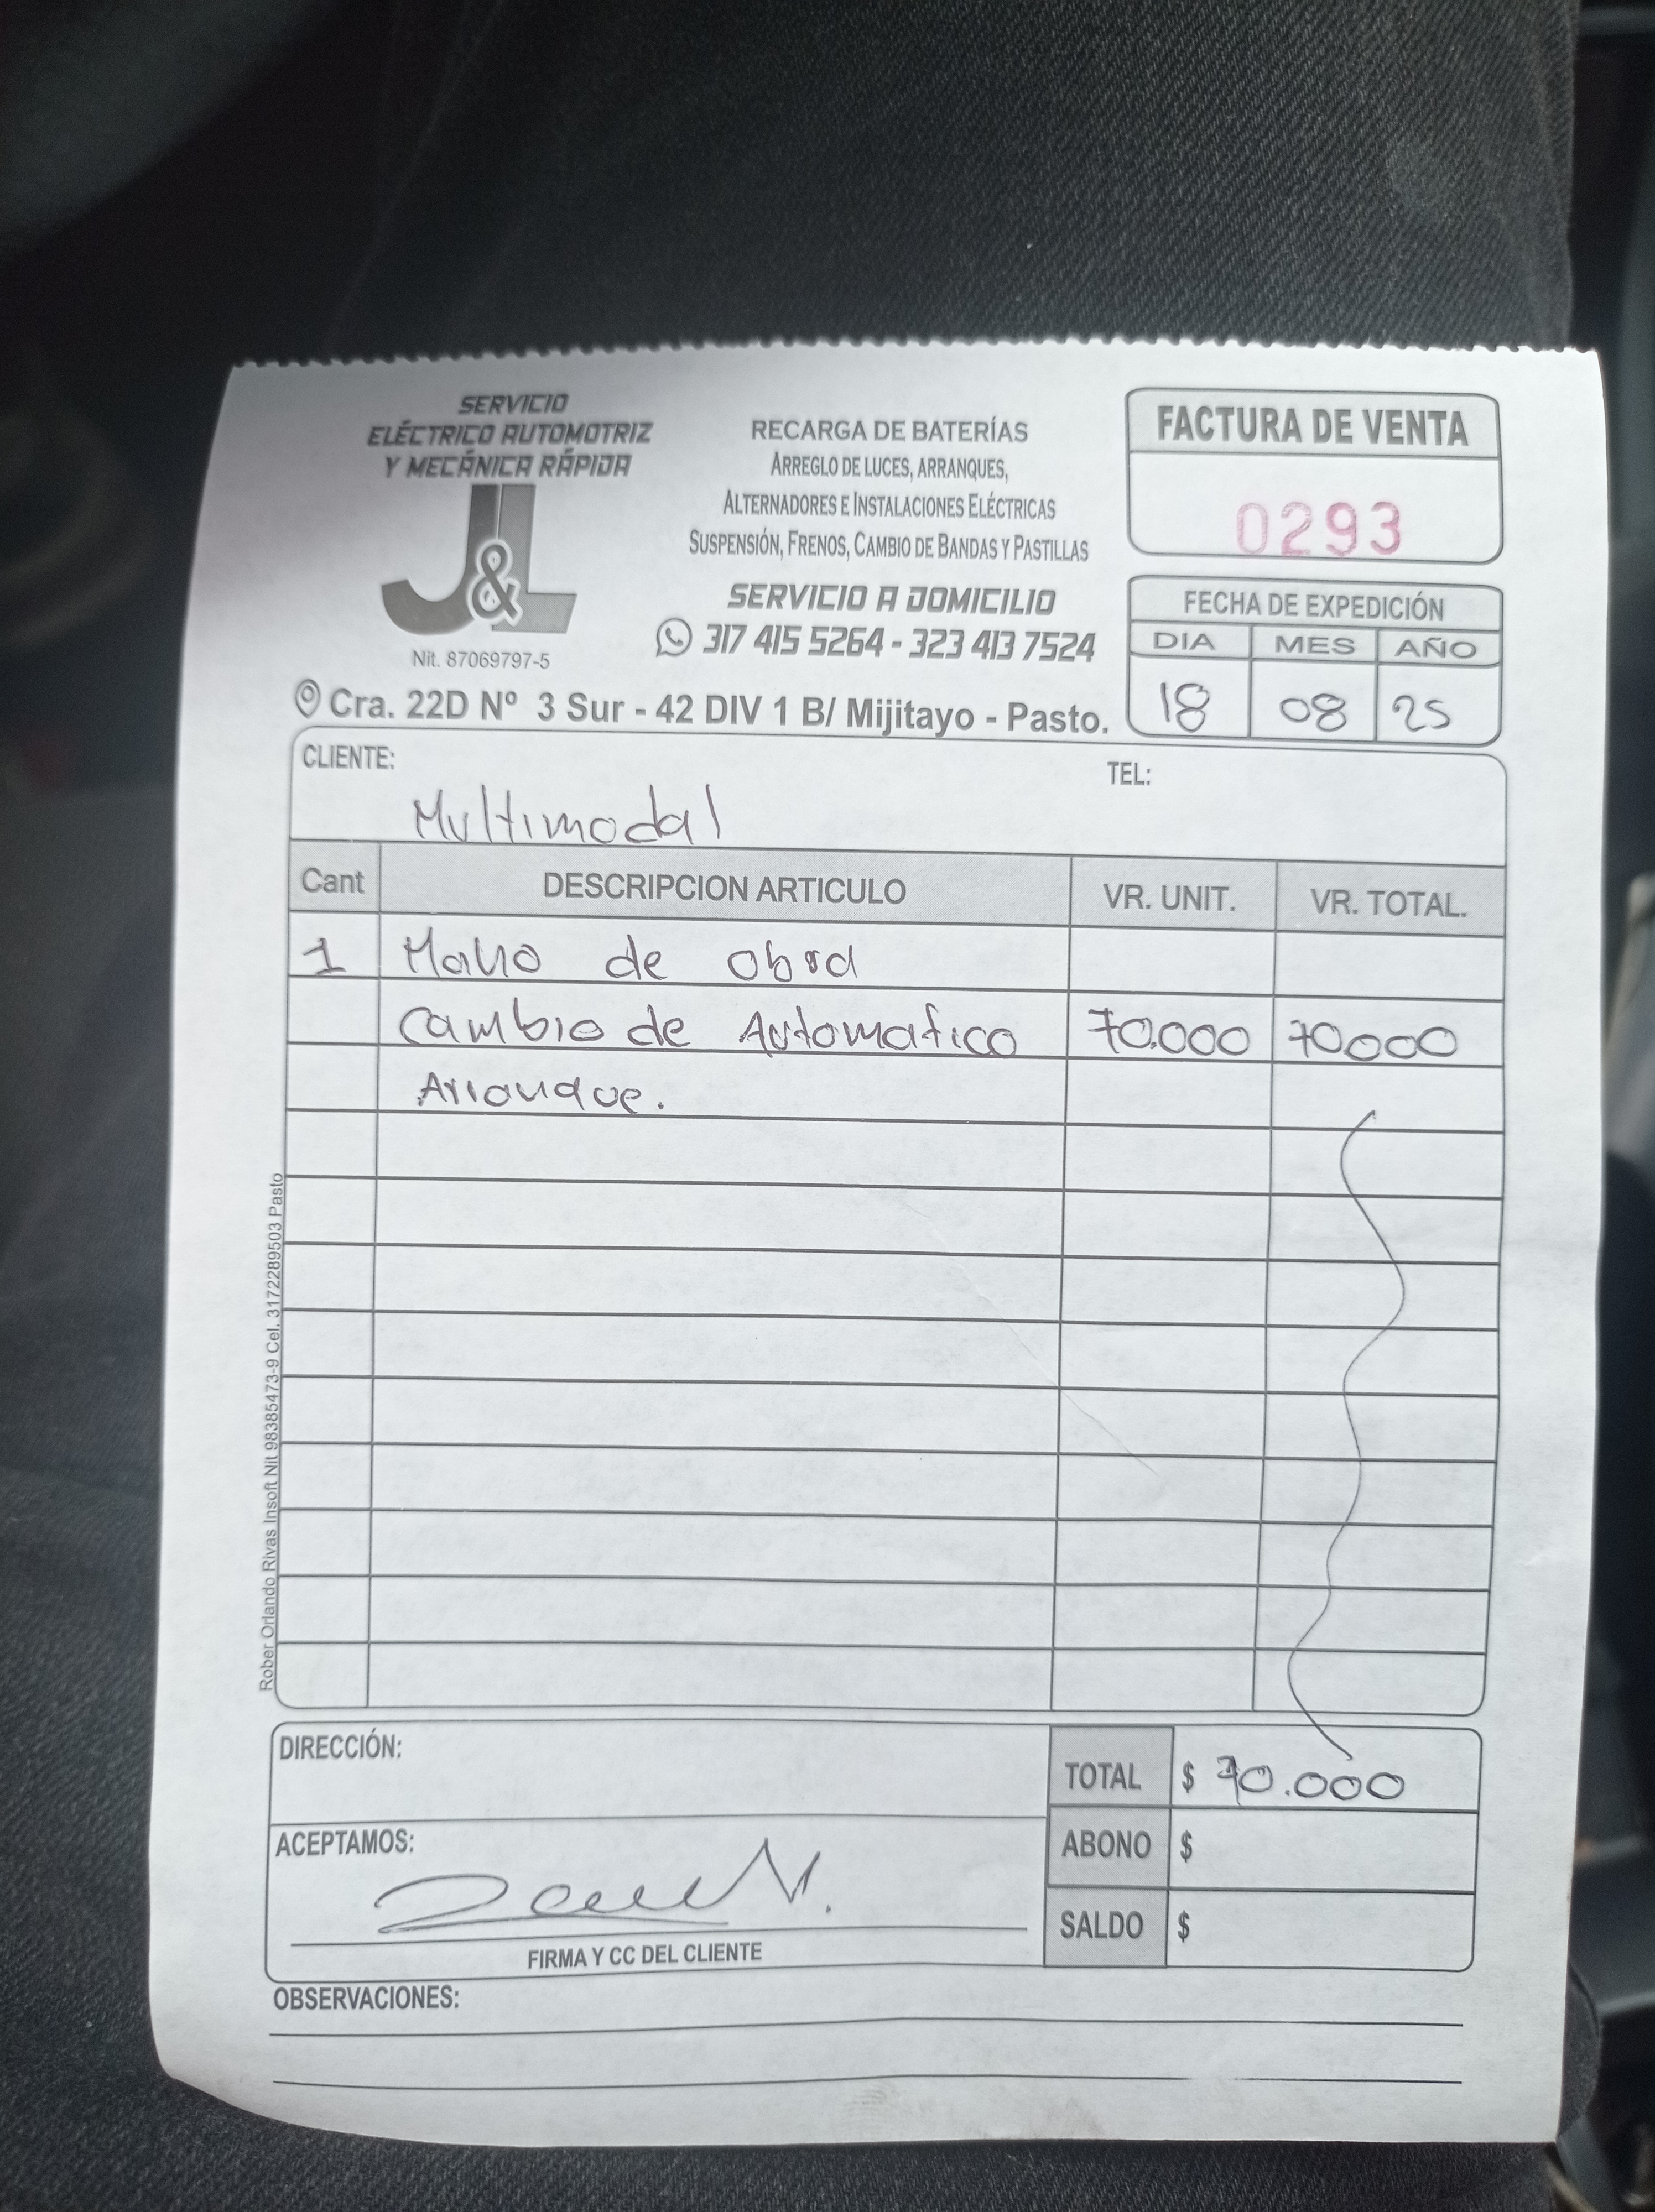 SERVICIO
ELÉCTRICO AUTOMOTRIZ
Y MECÁNICA RÁPIDA
J&L
Nit. 87069797-5
RECARGA DE BATERÍAS
ARREGLO DE LUCES, ARRANQUES,
ALTERNADORES E INSTALACIONES ELÉCTRICAS
SUSPENSIÓN, FRENOS, CAMBIO DE BANDAS Y PASTILLAS
SERVICIO A DOMICILIO
317 415 5264 - 323 413 7524
Cra. 22D Nº 3 Sur - 42 DIV 1 B/ Mijitayo - Pasto.
FACTURA DE VENTA
0293
FECHA DE EXPEDICIÓN
DIA MES AÑO
18 08 25
CLIENTE: TEL:
Multimodal
Cant DESCRIPCION ARTICULO VR. UNIT. VR. TOTAL.
1 Mano de obra
Cambio de Automatico 70.000 70.000
Arranque.
Rober Orlando Rivas Insoft Nit 98385473-9 Cel. 3172289503 Pasto
DIRECCIÓN:
TOTAL $ 70.000
ACEPTAMOS:
ABONO $
SALDO $
FIRMA Y CC DEL CLIENTE
OBSERVACIONES: